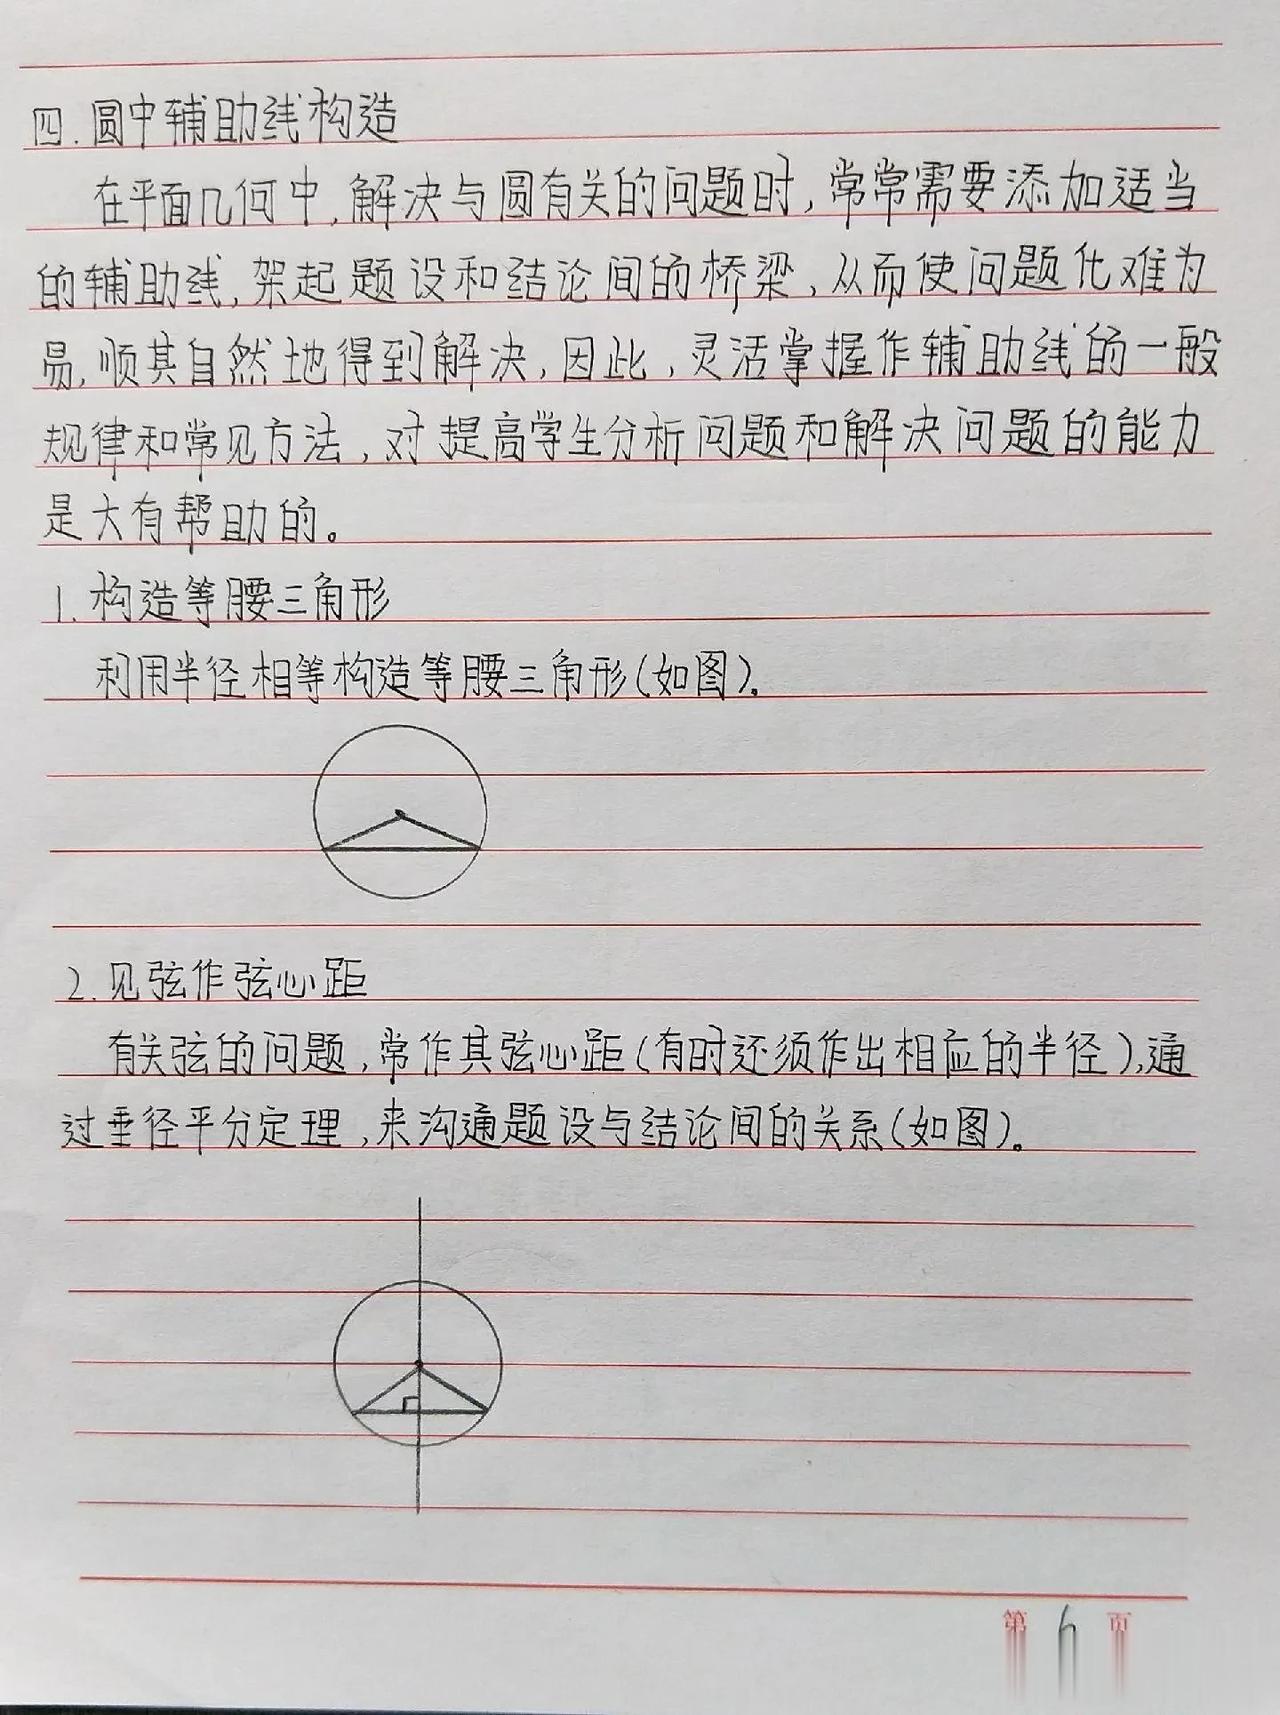 四.圆中辅助线构造
在平面几何中,解决与圆有关的问题时,常常需要添加适当
的辅助线,架起题设和结论间的桥梁,从而使问题化难为
易,顺其自然地得到解决,因此,灵活掌握作辅助线的一般
规律和常见方法,对提高学生分析问题和解决问题的能力
是大有帮助的。
1.构造等腰三角形
利用半径相等构造等腰三角形(如图)。
2.见弦作弦心距
有关弦的问题,常作其弦心距(有时还须作出相应的半径),通
过垂径平分定理,来沟通题设与结论间的关系(如图)。
第 6 页